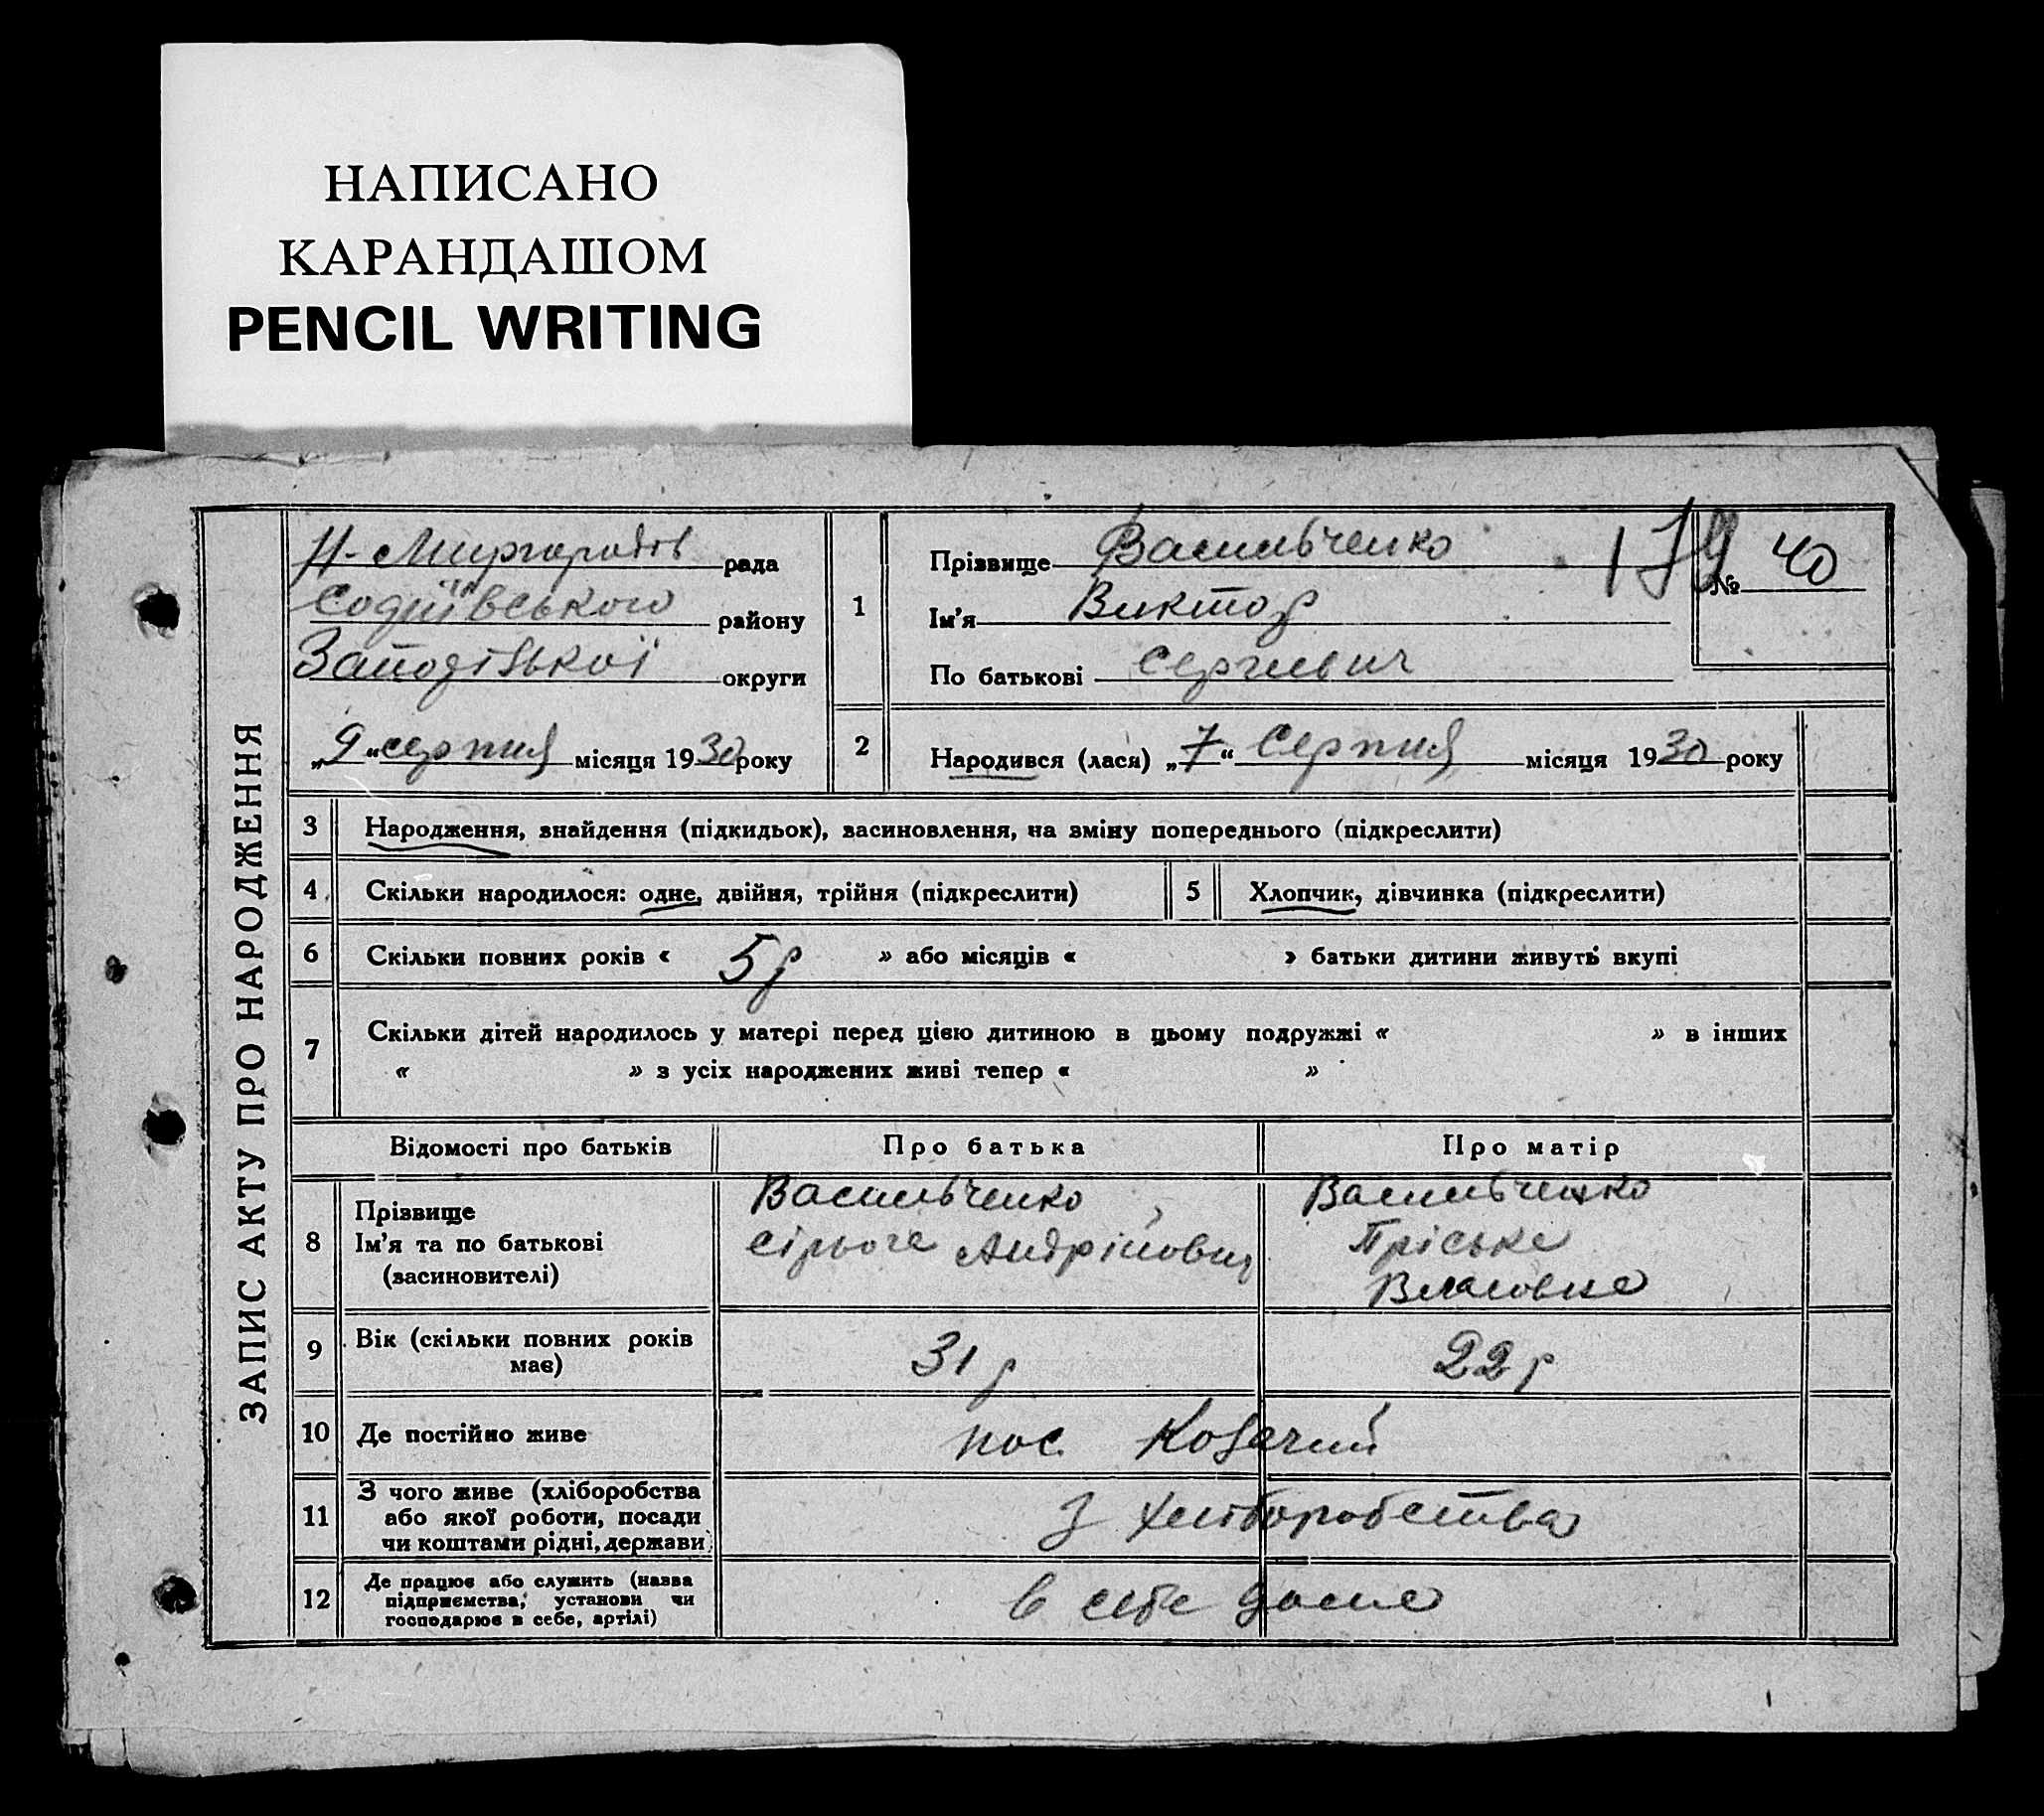 НАПИСАНО
КАРАНДАШОМ
PENCIL WRITING
ЗАПИС АКТУ ПРО НАРОДЖЕННЯ
Н-Миргородів рада
Софиївського району
округи
„9“ серпня місяця 1930 року
1
Прізвище Васильченко
Ім’я Виктор
По батькові Сергиевич
179
№ 40
2
Народився (лася) „7“ Серпня місяця 1930 року
3 Народження, знайдення (підкидьок), засиновлення, на зміну попереднього (підкреслити)
4 Скільки народилося: одне, двійня, трійня (підкреслити)
5 Хлопчик, дівчинка (підкреслити)
6 Скільки повних років « 5 р » або місяців « » батьки дитини живуть вкупі
7 Скільки дітей народилось у матері перед цією дитиною в цьому подружжі « » в інших
« » з усіх народжених живі тепер « »
Відомості про батьків Про батька Про матір
8
Прізвище
Ім’я та по батькові
(засиновителі)
Васильченко
Сірьоге Андрійович
Васильченко
Пріське
Власовне
9 Вік (скільки повних років
має)
31 р
22 р
10 Де постійно живе пос. Козачий
11
З чого живе (хліборобства
або якої роботи, посади
чи коштами рідні, держави)
З хліборобства
12
Де працює або служить (назва
підприємства, установи чи
господарює в себе, артілі)
в себе доме